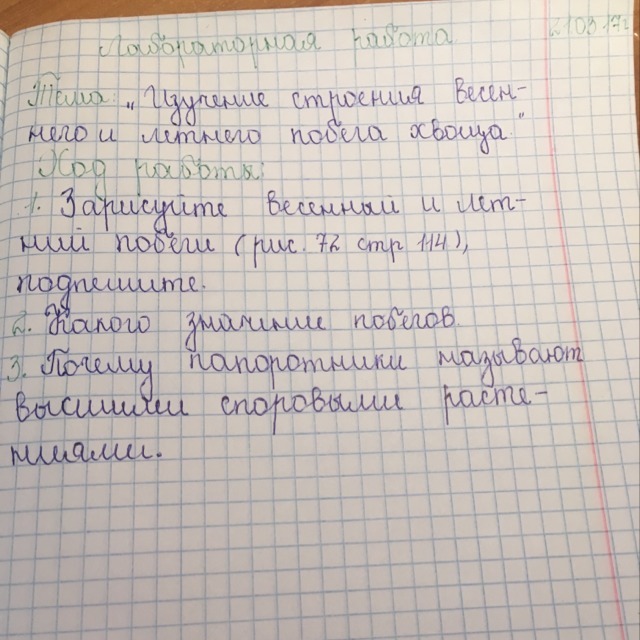 Лабораторная работа 21.03.17г.
Тема: „Изучение строения весен-
него и летнего побега хвоща."
Ход работы:
1. Зарисуйте весенный и лет-
ний побеги (рис. 72 стр 114),
подпешите.
2. Какого значиние побегов.
3. Почему папоротники называют
высшими споровыми расте-
ниями.